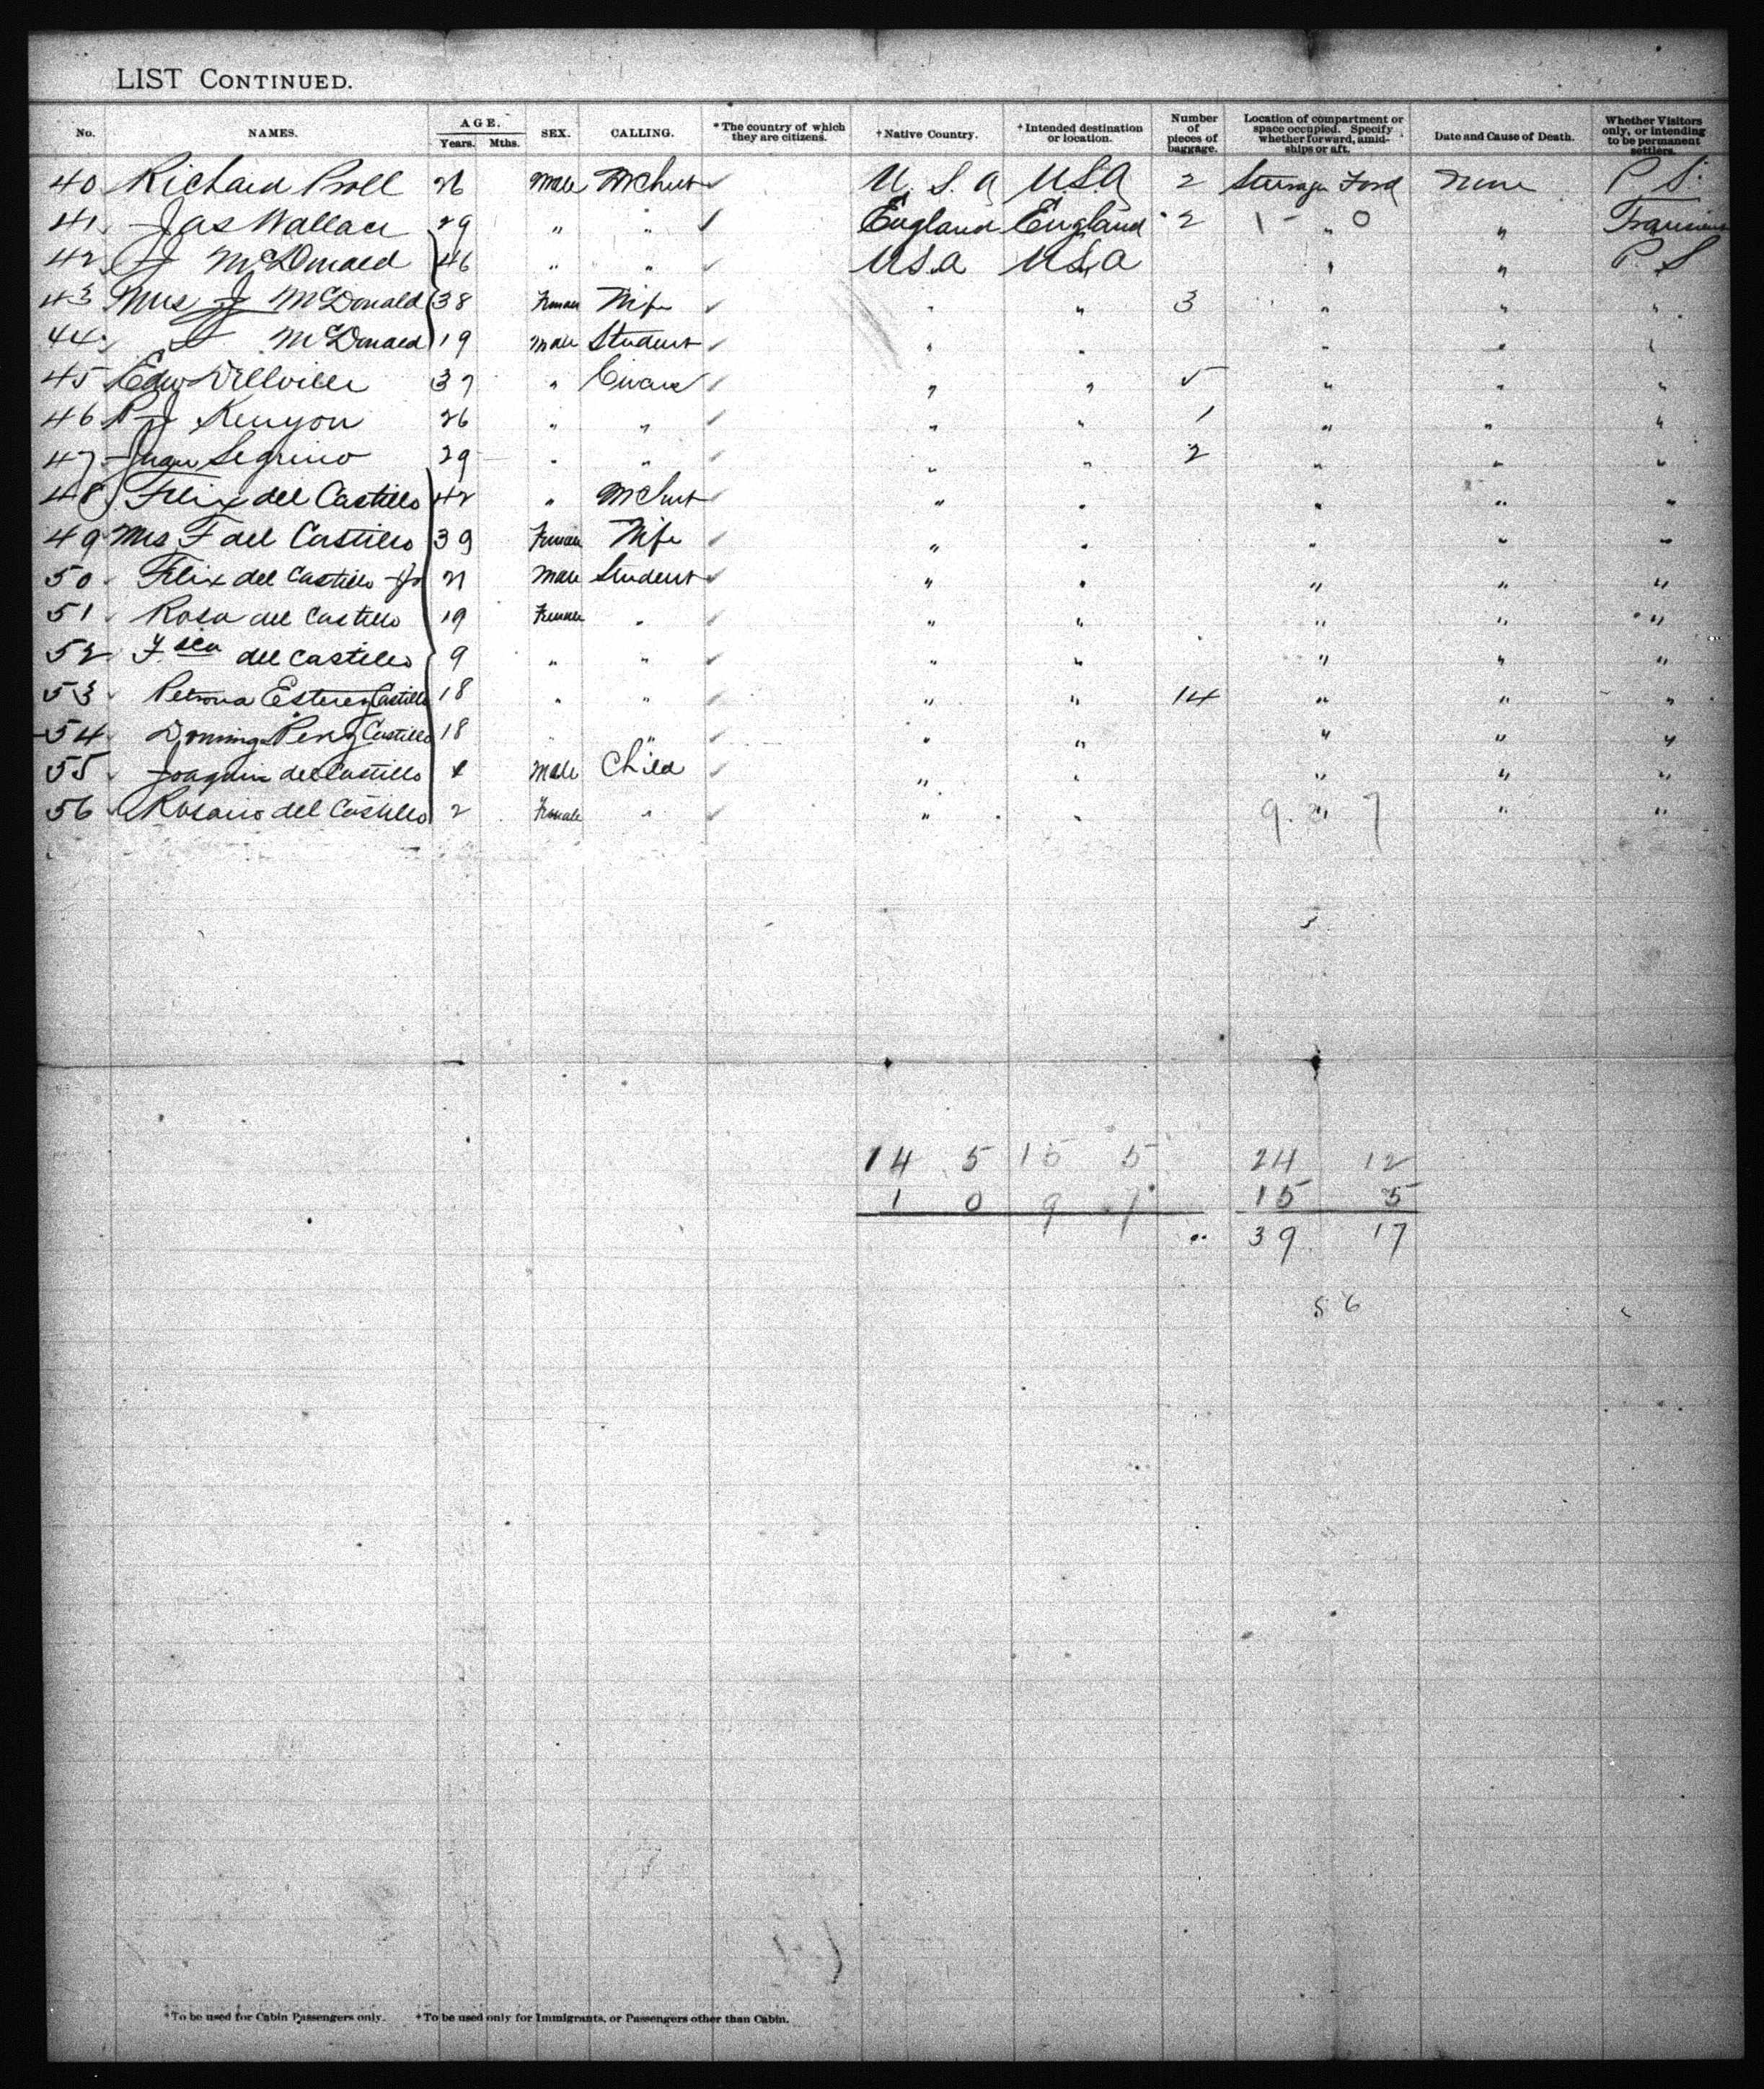 LIST CONTINUED.
No. NAMES. AGE. Years. Mths. SEX. CALLING. *The country of which they are citizens. †Native Country. †Intended destination or location. Number of pieces of baggage. Location of compartment or space occupied. Specify whether forward, amidships or aft. Date and Cause of Death. Whether Visitors only, or intending to be permanent settlers.
40 Richard 26 Male Mchnt ✓ U. S. A USA 2 Steerage Forwd None P. S.
41 Jas Wallace 29 " " ✓ England England 2 1 - " 0 " Transient
42 J McDonald 46 " " ✓ USA USA " " P. S
43 Mrs J McDonald 38 Female Wife ✓ " " 3 " " "
44 McDonald 19 Male Student ✓ " " " " "
45 Edw 37 " ✓ " " " " "
46 P J Kenyon 26 " " ✓ " " 1 " " "
47 Juan Segrino 29 " " ✓ " " 2 " " "
48 Felix del Castillo 42 " Mchnt ✓ " " " " "
49 Mrs F del Castillo 39 Female Wife ✓ " " " " "
50 Felix del Castillo Jr 21 Male Student ✓ " " " " "
51 Rosa del Castillo 19 Female " ✓ " " " " "
52 Fsca del Castillo 9 " " ✓ " " " " "
53 Petrona Esterez Castillo 18 " " ✓ " " 14 " " "
54 Domingo Perez Castillo 18 " " ✓ " " " " "
55 Joaquin del Castillo Male Child ✓ " " " " "
56 Rosario del Castillo 2 Female " ✓ " " 9. " 7 " "
14 5 15 5 24 12
1 0 9 7 15 5
39 17
56
*To be used for Cabin Passengers only. †To be used only for Immigrants, or Passengers other than Cabin.